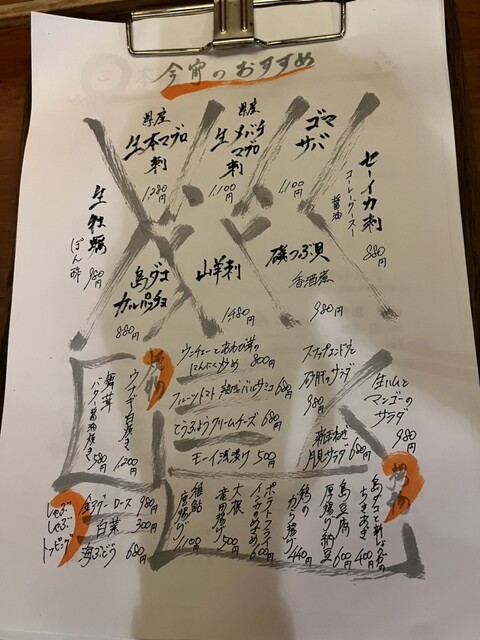 今宵のおすすめ
県産
生本マグロ
刺
1,280円
県産
生メバチ
マグロ
刺
1,100円
ゴマ
サバ
1,100円
セーイカ刺
コーレーグースー
醤油
880円
生牡蠣
ぽん酢
980円
島ダコ
カルパッチョ
880円
山羊刺
1,480円
磯つぶ貝
香酒煮
980円
ウンチェーとあわび茸の
にんにく炒め 800円
フルーツトマト 熟成バルサミコ 680円
とうふようクリームチーズ 680円
モーイ浅漬け 500円
スナップエンドウと
砂肝のサラダ
980円
新玉ねぎ
月見サラダ 680円
生ハムと
マンゴーの
サラダ
980円
焼物
ウナギ白焼き
1,200円
舞茸
バター醤油焼き
580円
揚物
島ダコと新しょうがの
かきあげ
400円
島豆腐
厚揚げ納豆
600円
鶏の
から揚げ
440円
ポテトフライ
インカのめざめ
600円
大根
竜田揚げ
500円
稚鮎
唐揚げ
1,100円
しゃぶ
しゃぶ
トッピング
金アグーロース 980円
白菜 300円
海ぶどう 680円